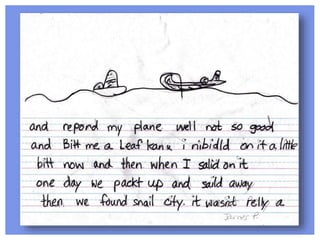 and repond my plane well not so good
and Bitt me a Leaf kanu i nibidld on it a little
bitt now and then when I salid on it
one day we packt up and saild away
then we found snail city. it wasn't relly a
James P.